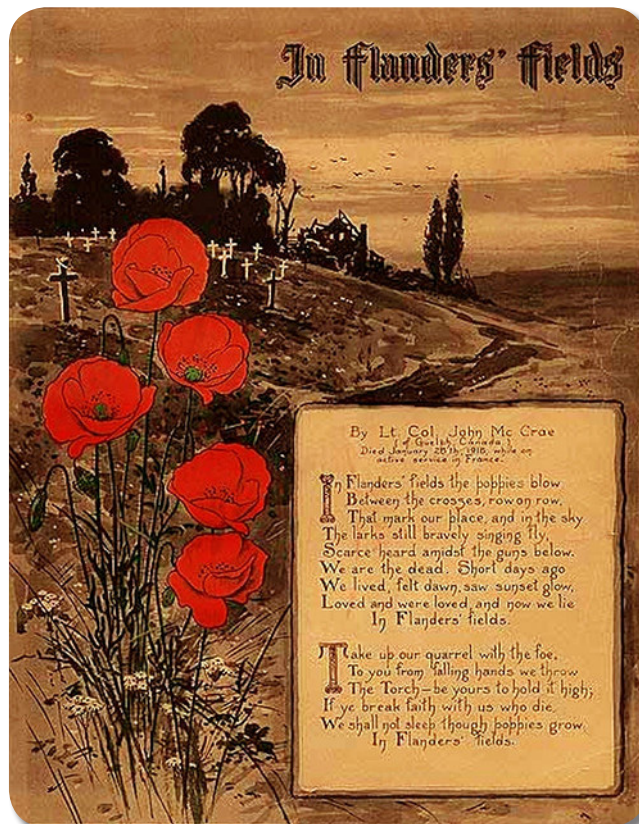 In Flanders' Fields
By Lt. Col. John Mc Crae
(of Guelph, Canada.)
Died January 28th, 1918, while on
active service in France.
In Flanders' fields the poppies blow
Between the crosses, row on row,
That mark our place, and in the sky
The larks still bravely singing fly,
Scarce heard amidst the guns below.
We are the dead. Short days ago
We lived, felt dawn, saw sunset glow,
Loved and were loved, and now we lie
In Flanders' fields.
Take up our quarrel with the foe,
To you from falling hands we throw
The Torch – be yours to hold it high;
If ye break faith with us who die,
We shall not sleep though poppies grow
In Flanders' fields.